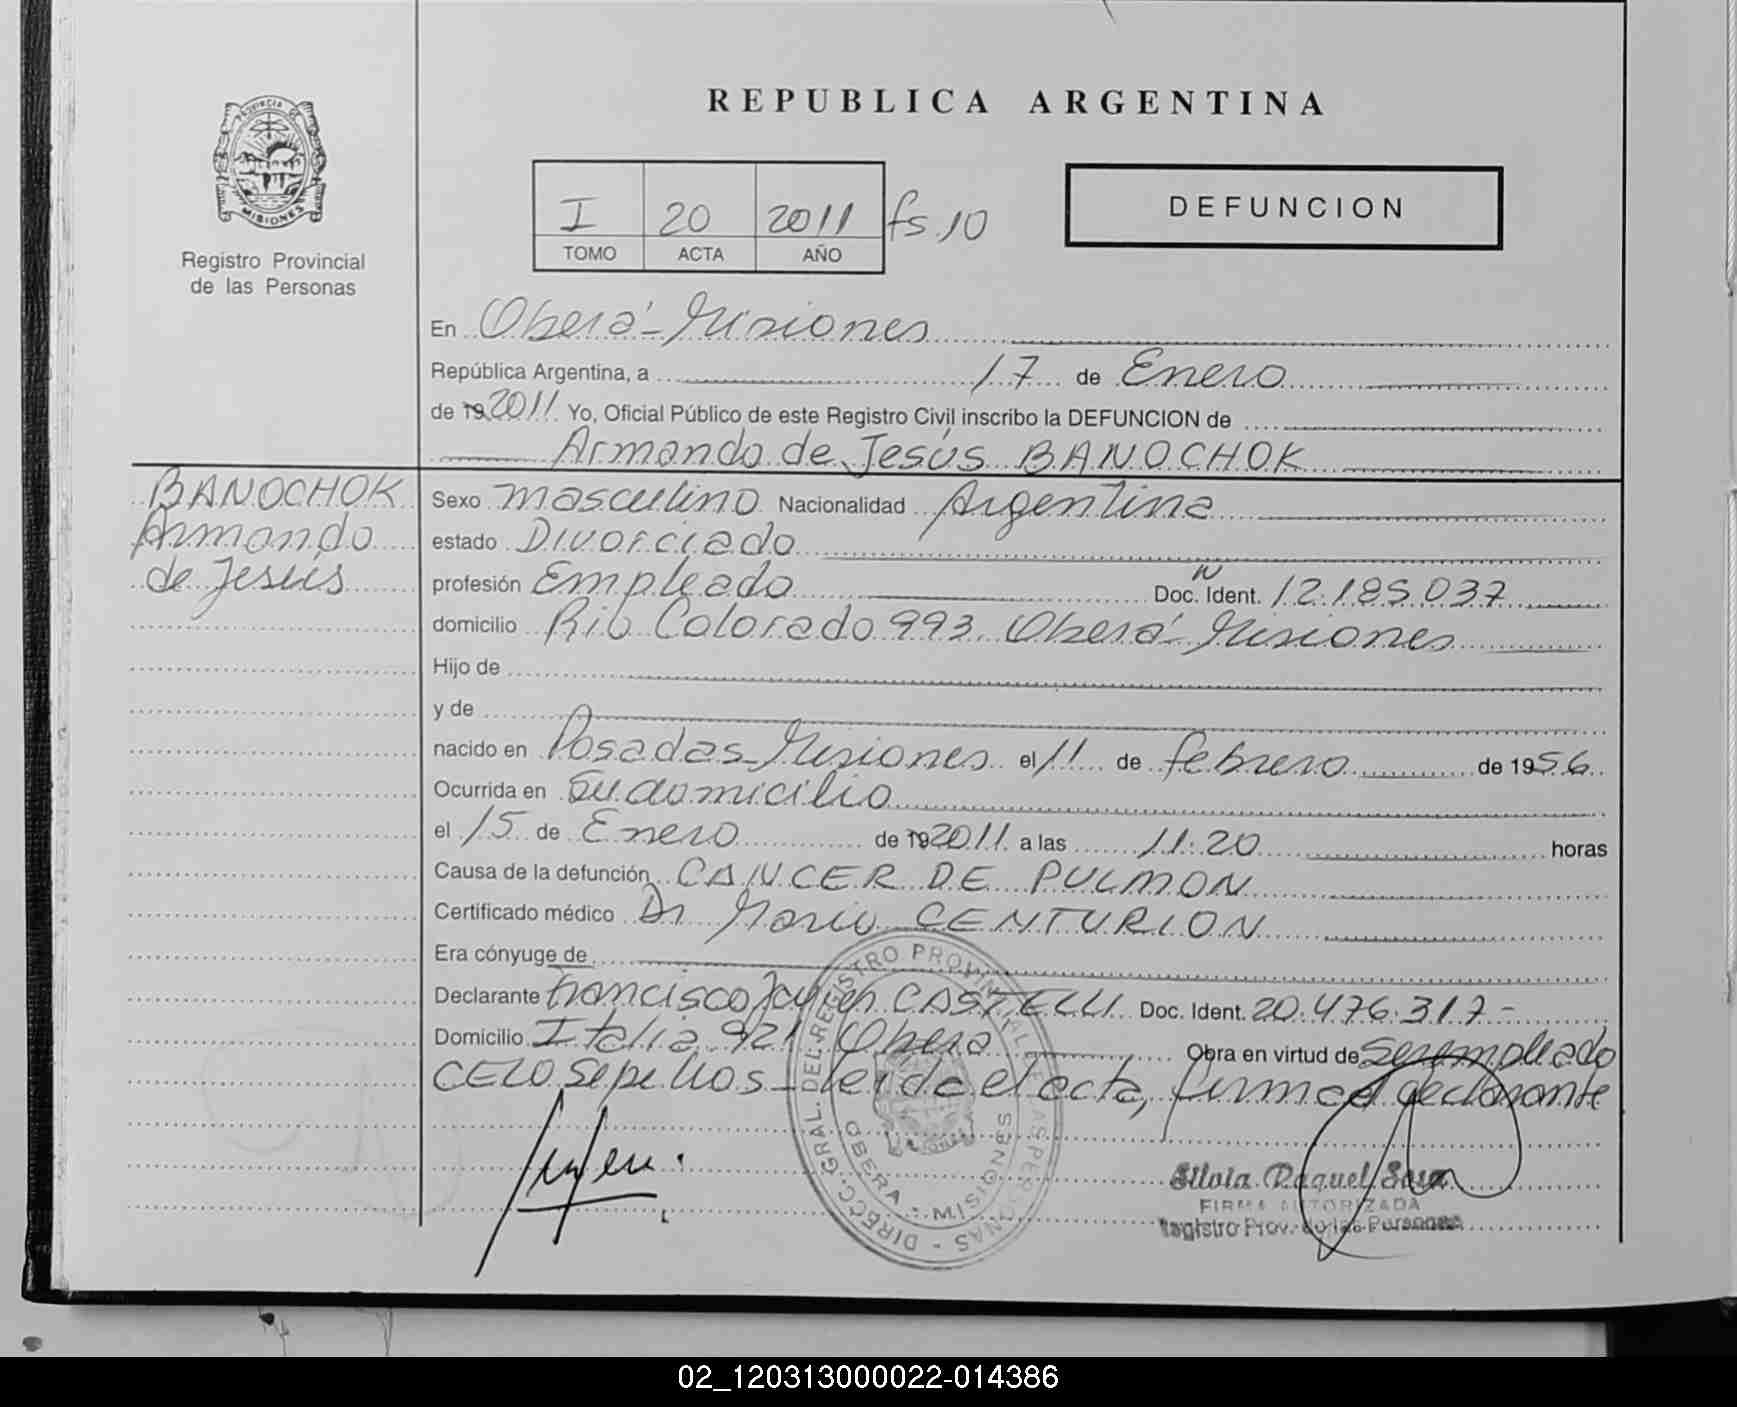 REPUBLICA ARGENTINA
PROVINCIA DE
MISIONES
Registro Provincial
de las Personas
I 20 2011 fs. 10
TOMO ACTA AÑO
DEFUNCION
En Oberá - Misiones
República Argentina, a 17 de Enero
de 19 2011 Yo, Oficial Público de este Registro Civil inscribo la DEFUNCION de
Armando de Jesús BANOCHOK
BANOCHOK
Armando
de Jesús
Sexo masculino Nacionalidad Argentina
estado Divorciado
profesión Empleado Doc. Ident. 12.185.037
domicilio Río Colorado 993. Oberá - Misiones
Hijo de
y de
nacido en Posadas - Misiones el 11 de febrero de 1956
Ocurrida en Su domicilio
el 15 de Enero de 19 2011 a las 11.20 horas
Causa de la defunción CANCER DE PULMON
Certificado médico Dr Mario CENTURION
Era cónyuge de
Declarante Francisco Javier CASTELLI Doc. Ident. 20.476.317-
Domicilio Italia 921 Oberá Obra en virtud de Ser empleado
CELO Sepelios - leida el acta, firma el declarante
DIRECC. GRAL. DEL REGISTRO PROVINCIAL DE LAS PERSONAS
OBERA - MISIONES
Silvia Raquel Sosa
FIRMA AUTORIZADA
Registro Prov. de las Personas
02_120313000022-014386